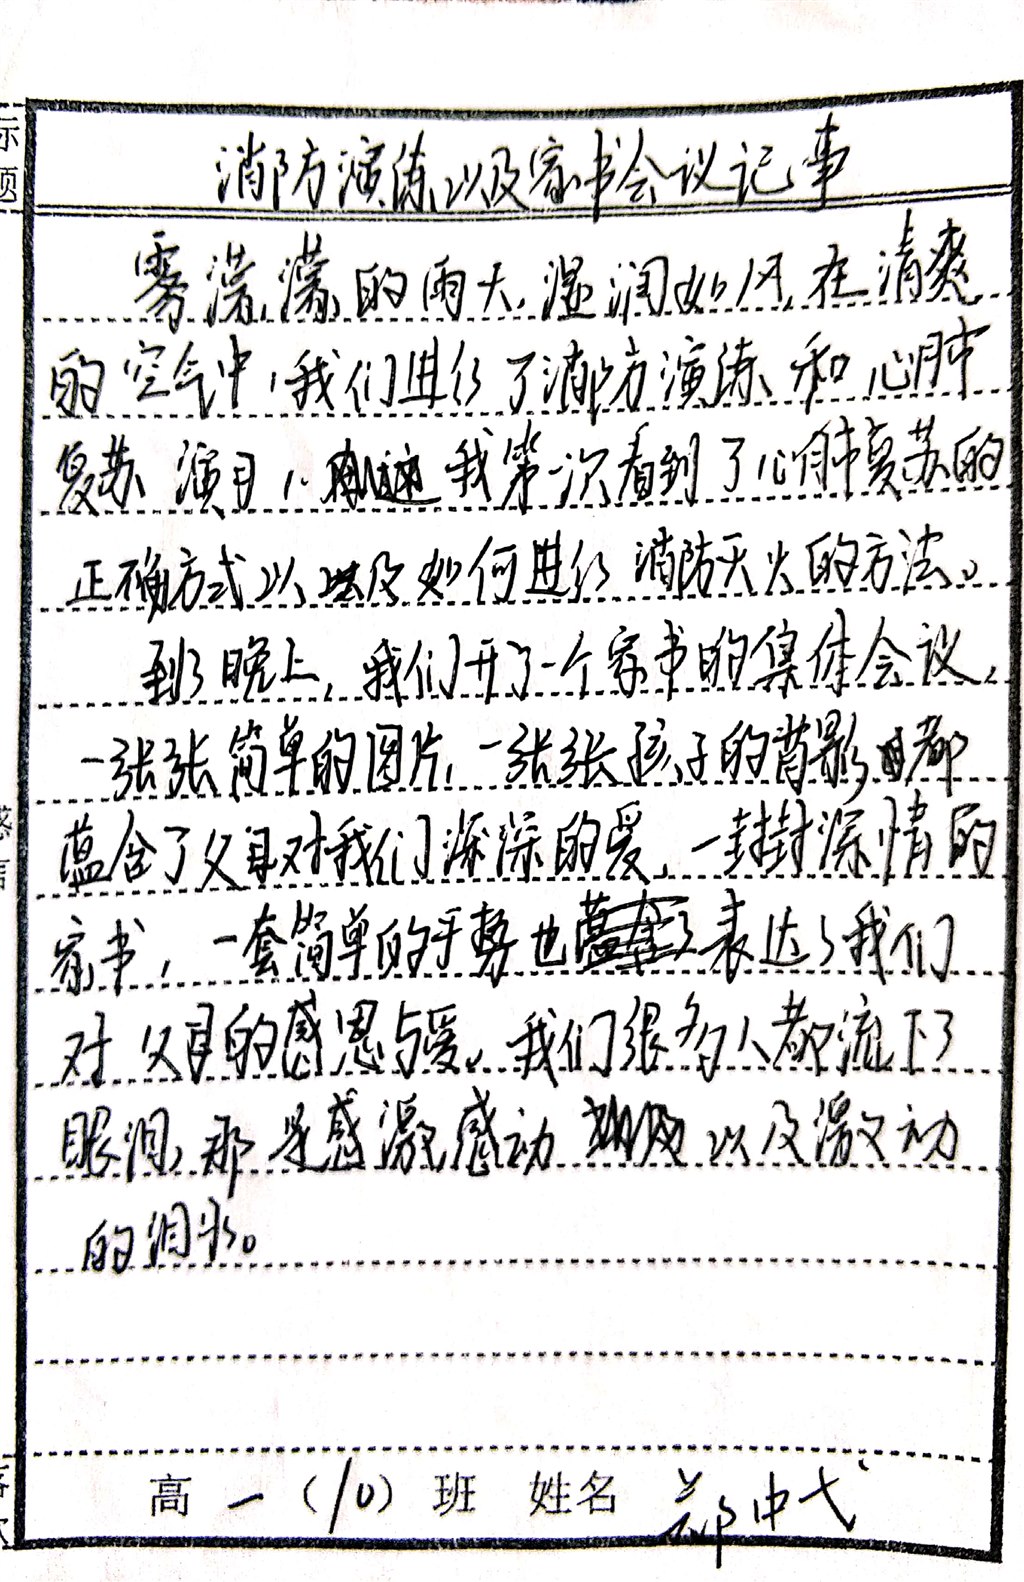 标
题
消防演练以及家书会议记事
雾濛濛的雨天,湿润如风,在清爽
的空气中,我们进行了消防演练和心肺
复苏演目,我第一次看到了心肺复苏的
正确方式以及如何进行消防灭火的方法。
到了晚上,我们开了一个家书的集体会议,
一张张简单的图片,一张张孩子的背影,都
蕴含了父母对我们深深的爱,一封封深情的
家书,一套简单的手势也表达了我们
对父母的感恩与爱。我们很多人都流下了
眼泪,那是感激感动以及激动
的泪水。
高一(10)班 姓名